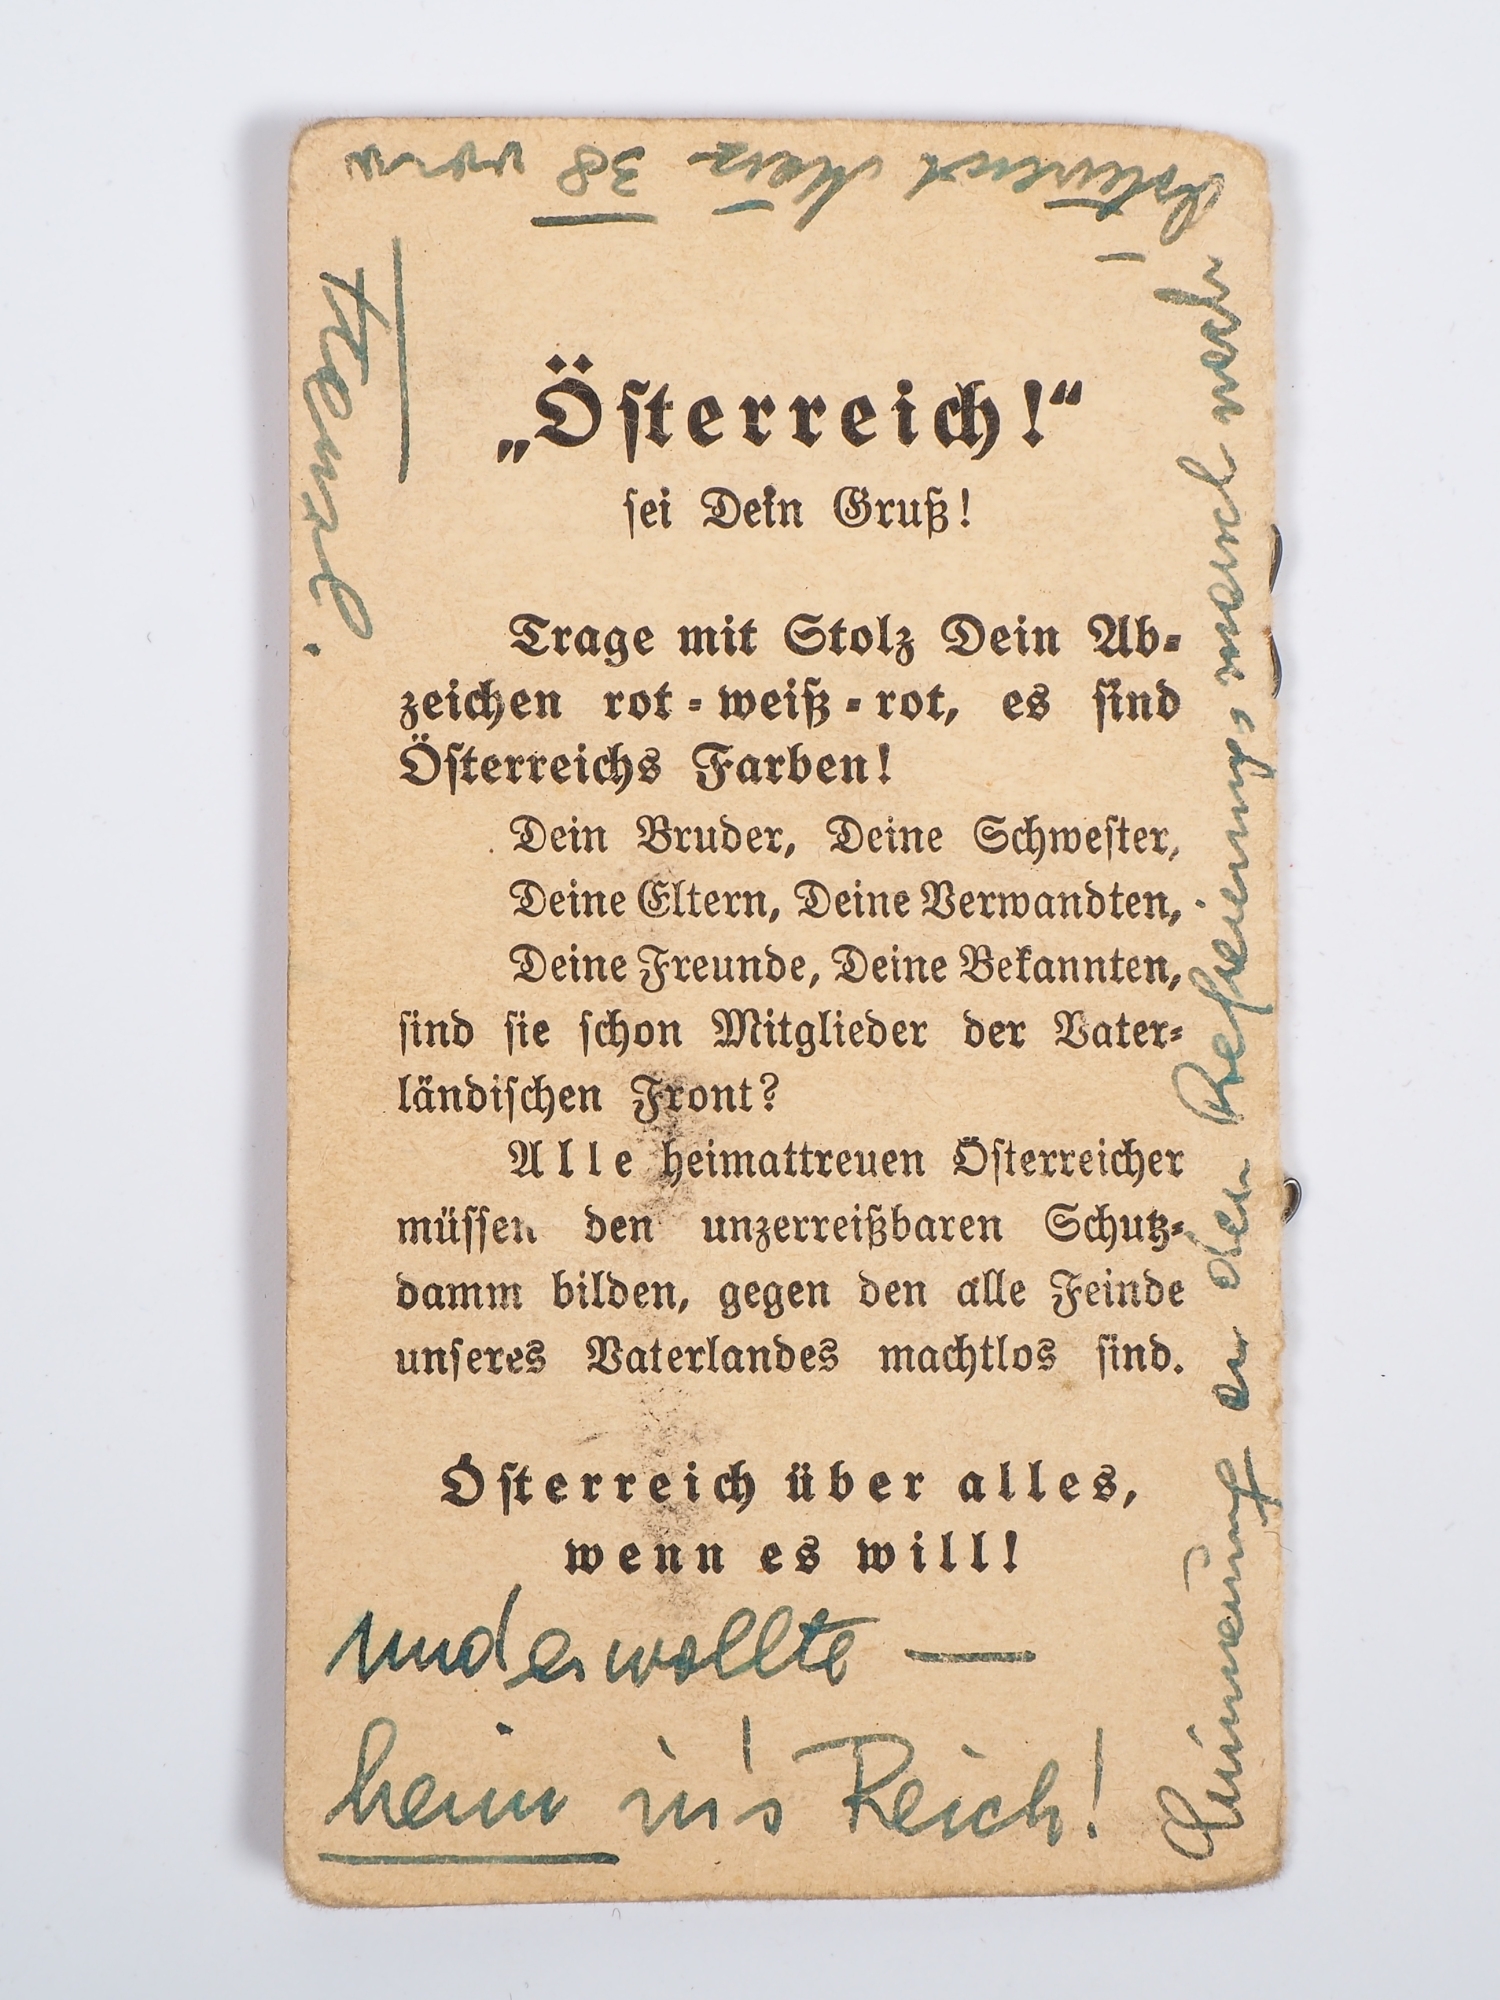 „Österreich!“
sei Dein Gruß!
Trage mit Stolz Dein Ab-
zeichen rot-weiß-rot, es sind
Österreichs Farben!
Dein Bruder, Deine Schwester,
Deine Eltern, Deine Verwandten,
Deine Freunde, Deine Bekannten,
sind sie schon Mitglieder der Vater-
ländischen Front?
Alle heimattreuen Österreicher
müssen den unzerreißbaren Schutz-
damm bilden, gegen den alle Feinde
unseres Vaterlandes machtlos sind.
Österreich über alles,
wenn es will!
und es wollte —
heim in's Reich!
Erinnerung an den Befreiungsmarsch nach
Österreich März 38 vom